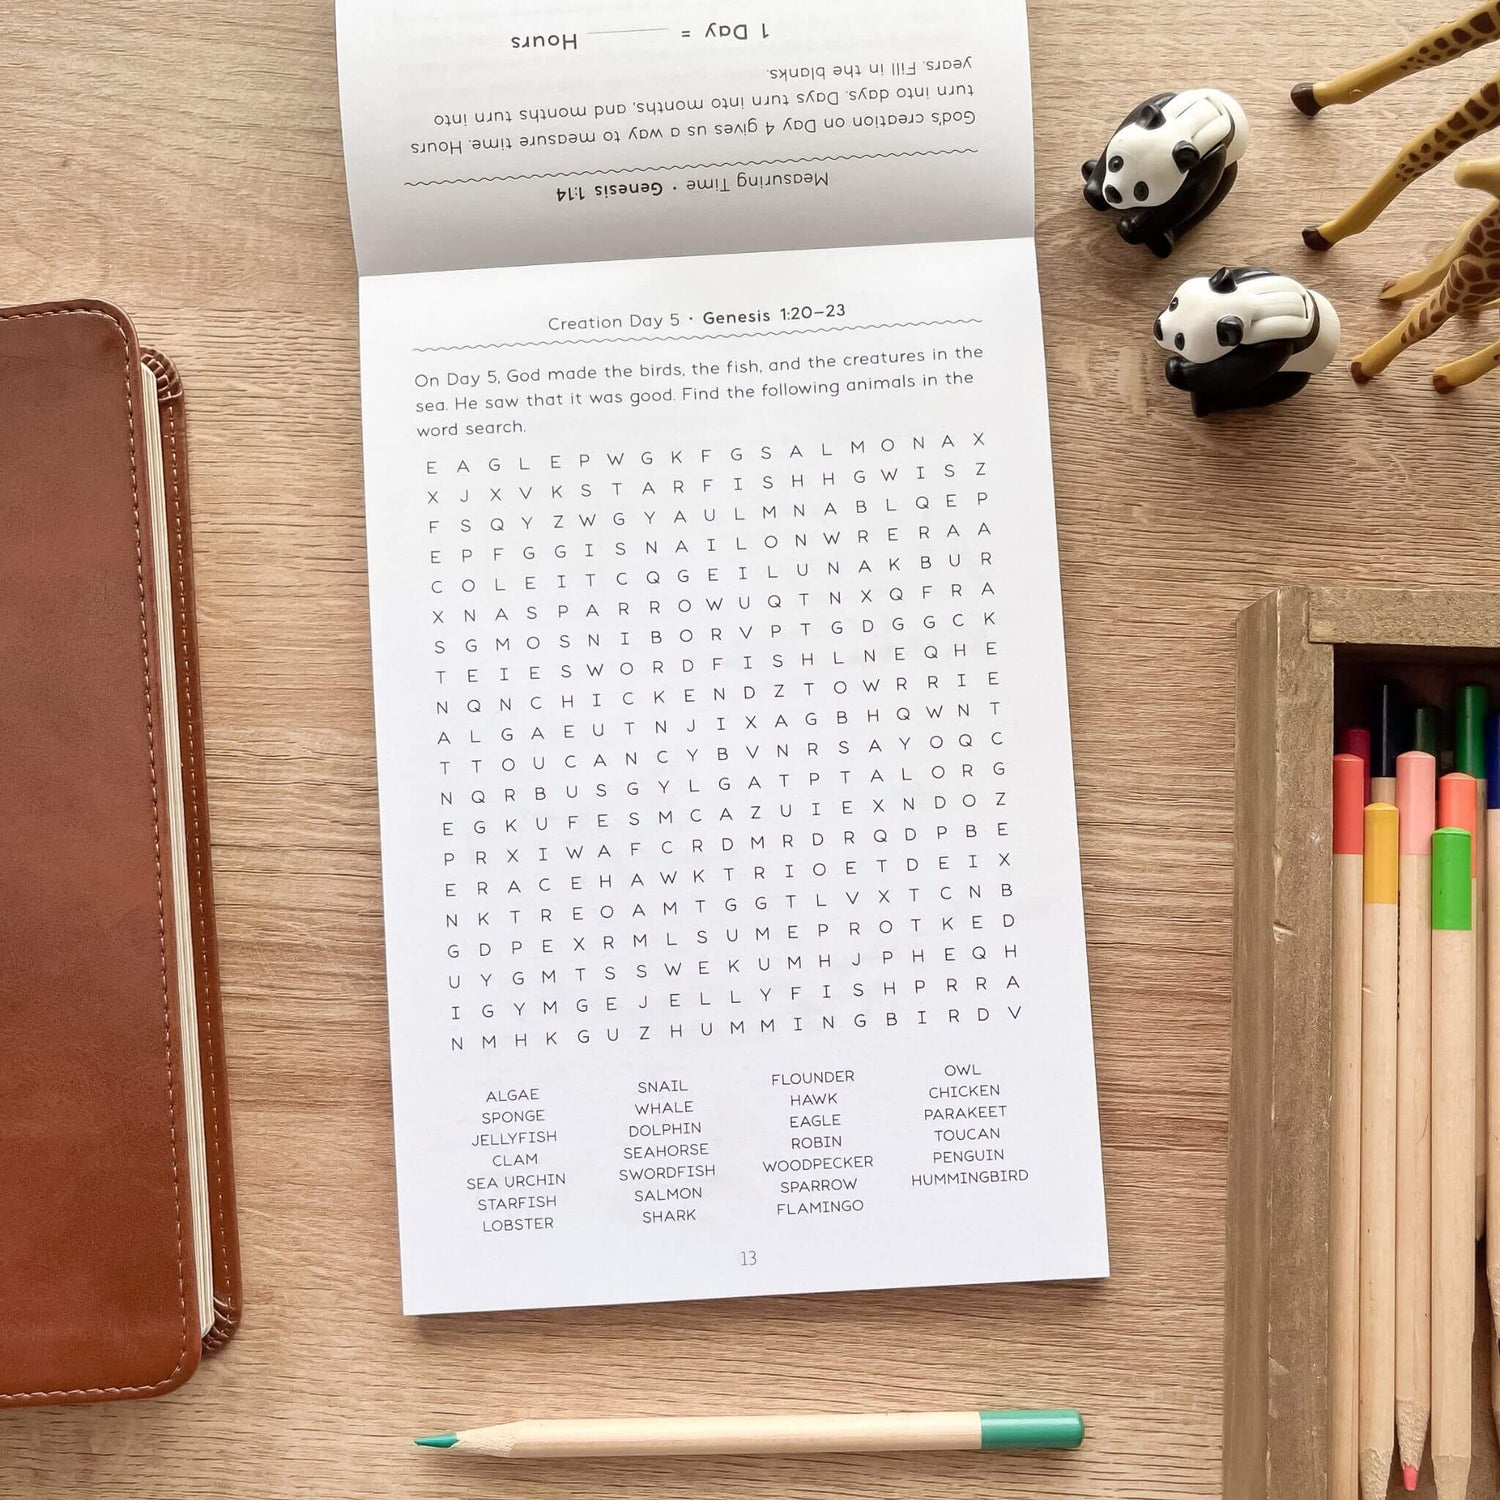 1 Day = ______ Hours
years. Fill in the blanks.
turn into days. Days turn into months, and months turn into
God's creation on Day 4 gives us a way to measure time. Hours
Measuring Time · Genesis 1:14
Creation Day 5 · Genesis 1:20–23
On Day 5, God made the birds, the fish, and the creatures in the
sea. He saw that it was good. Find the following animals in the
word search.
E A G L E P W G K F G S A L M O N A X
X J X V K S T A R F I S H H G W I S Z
F S Q Y Z W G Y A U L M N A B L Q E P
E P F G G I S N A I L O N W R E R A A
C O L E I T C Q G E I L U N A K B U R
X N A S P A R R O W U Q T N X Q F R A
S G M O S N I B O R V P T G D G G C K
T E I E S W O R D F I S H L N E Q H E
N Q N C H I C K E N D Z T O W R R I E
A L G A E U T N J I X A G B H Q W N T
T T O U C A N C Y B V N R S A Y O Q C
N Q R B U S G Y L G A T P T A L O R G
E G K U F E S M C A Z U I E X N D O Z
P R X I W A F C R D M R D R Q D P B E
E R A C E H A W K T R I O E T D E I X
N K T R E O A M T G G T L V X T C N B
G D P E X R M L S U M E P R O T K E D
U Y G M T S S W E K U M H J P H E Q H
I G Y M G E J E L L Y F I S H P R R A
N M H K G U Z H U M M I N G B I R D V
ALGAE
SPONGE
JELLYFISH
CLAM
SEA URCHIN
STARFISH
LOBSTER
SNAIL
WHALE
DOLPHIN
SEAHORSE
SWORDFISH
SALMON
SHARK
FLOUNDER
HAWK
EAGLE
ROBIN
WOODPECKER
SPARROW
FLAMINGO
OWL
CHICKEN
PARAKEET
TOUCAN
PENGUIN
HUMMINGBIRD
13